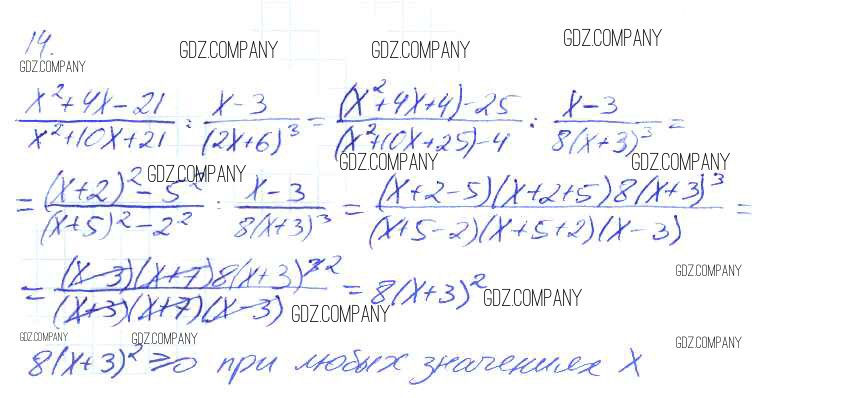 14.
GDZ.COMPANY GDZ.COMPANY GDZ.COMPANY GDZ.COMPANY
(x²+4x-21)/(x²+10x+21) : (x-3)/(2x+6)³ = ((x²+4x+4)-25)/((x²+10x+25)-4) : (x-3)/(8(x+3)³) =
GDZ.COMPANY GDZ.COMPANY GDZ.COMPANY
= ((x+2)²-5²)/((x+5)²-2²) : (x-3)/(8(x+3)³) = ((x+2-5)(x+2+5)8(x+3)³)/((x+5-2)(x+5+2)(x-3)) =
GDZ.COMPANY
= ((x-3)(x+7)8(x+3)³ ²)/((x+3)(x+7)(x-3)) = 8(x+3)²
GDZ.COMPANY GDZ.COMPANY
GDZ.COMPANY GDZ.COMPANY GDZ.COMPANY
8(x+3)² ≥0 при любых значениях x